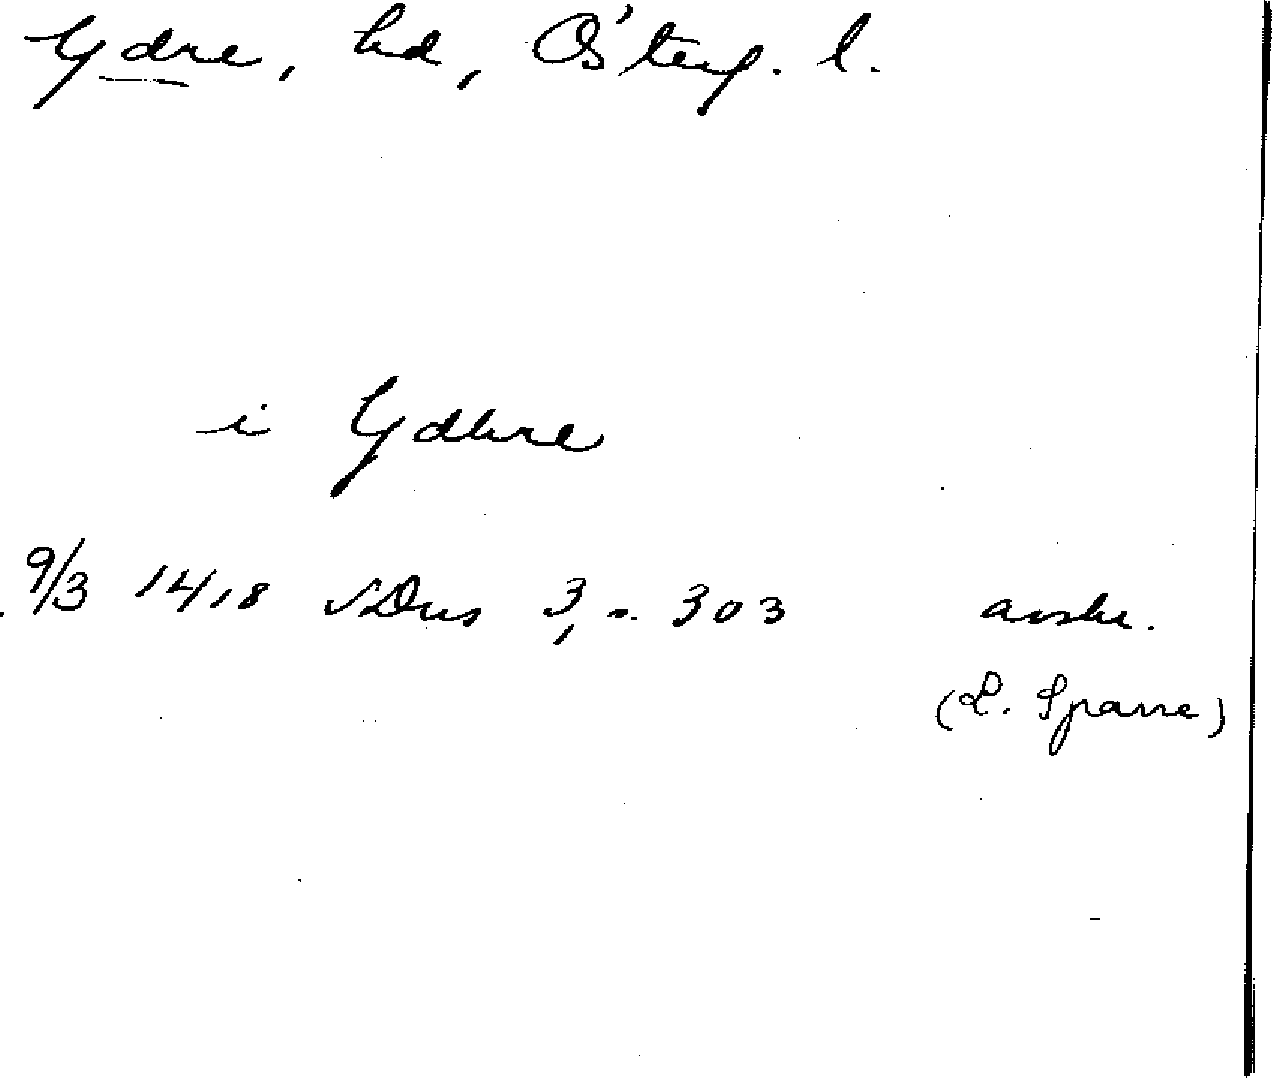 Ydre, hd, Österg. l.
i Ydhre
9/3 1418 SDns 3, s. 303 avskr.
(L. Sparre)